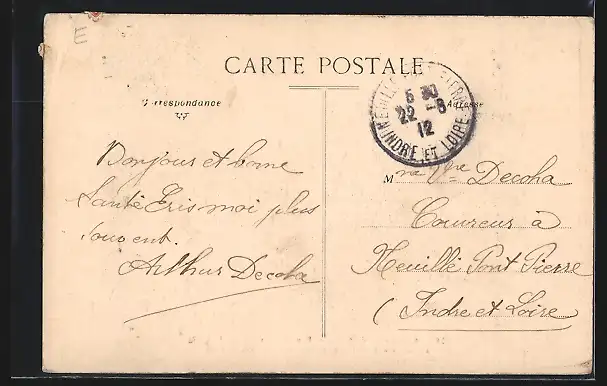 E
CARTE POSTALE
Correspondance
Adresse
NEUILLÉ PONT PIERRE
5 30
22 -8
12
INDRE ET LOIRE
Bonjour et bonne
Santé Eris moi plus
souvent.
Arthur Decoha
Mme Vve Decoha
Couvreur à
Neuillé Pont Pierre
(Indre et Loire)